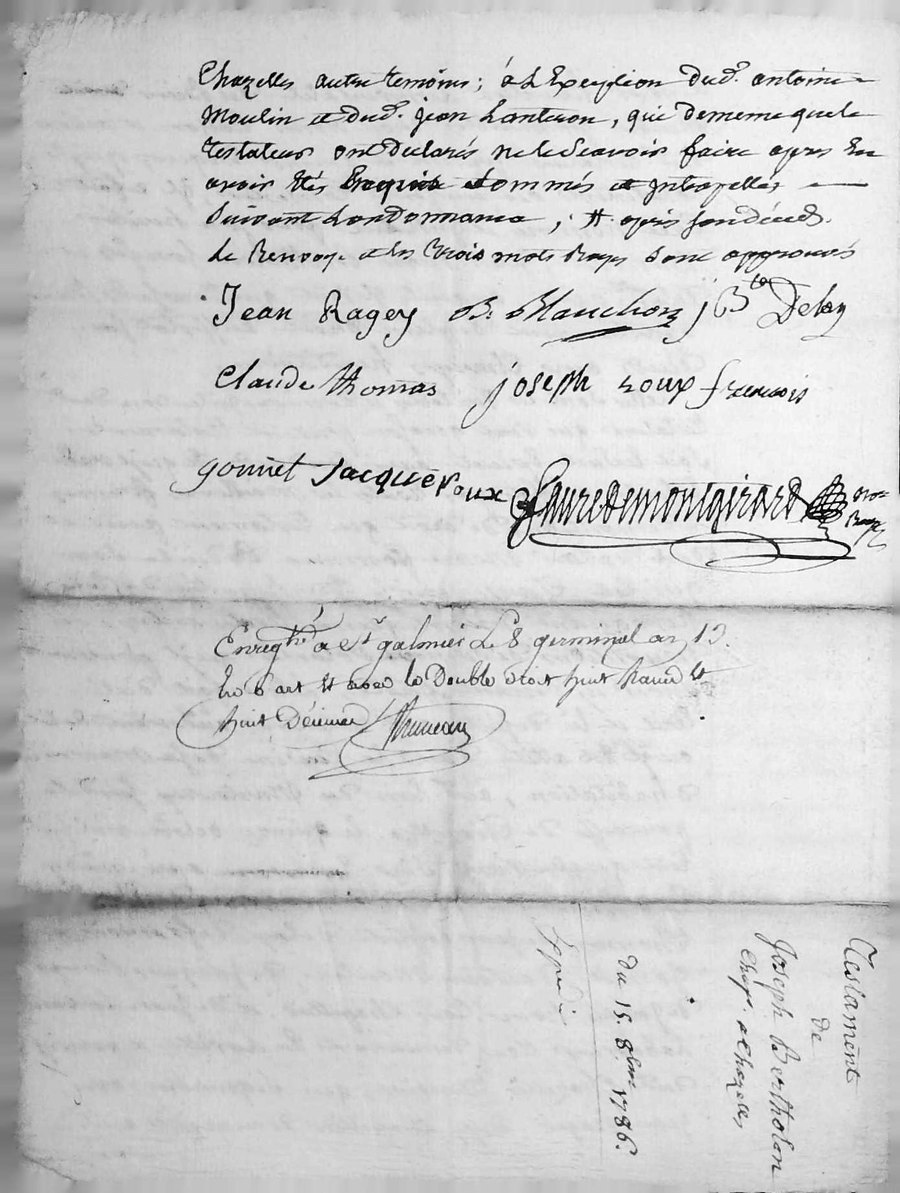 Chazelles autre temoins ; à L'Exception dud. antoine
Moulin et dud. jean Lanteron, qui dememe que le
testateur ont declarés ne le Scavoir faire apres En
avoir Etés Requis sommés et Interpellés
Suivant Lordonnance ; # après son décéds.
de Renvoy. et les trois mots Rayes Sont approuvés
Jean Ragey B. Blanchon j Bte Delay
Claude thomas joseph roux francois
gonnet Jacque roux Fauredemontgirard
Enregtré a St galmier Le 8 germinal an 13.
Double droit huit francs
huit Décimes
Testament
de
Joseph Bertholon
Chap. a Chazelles
du 15. 8bre 1786.
Expedié